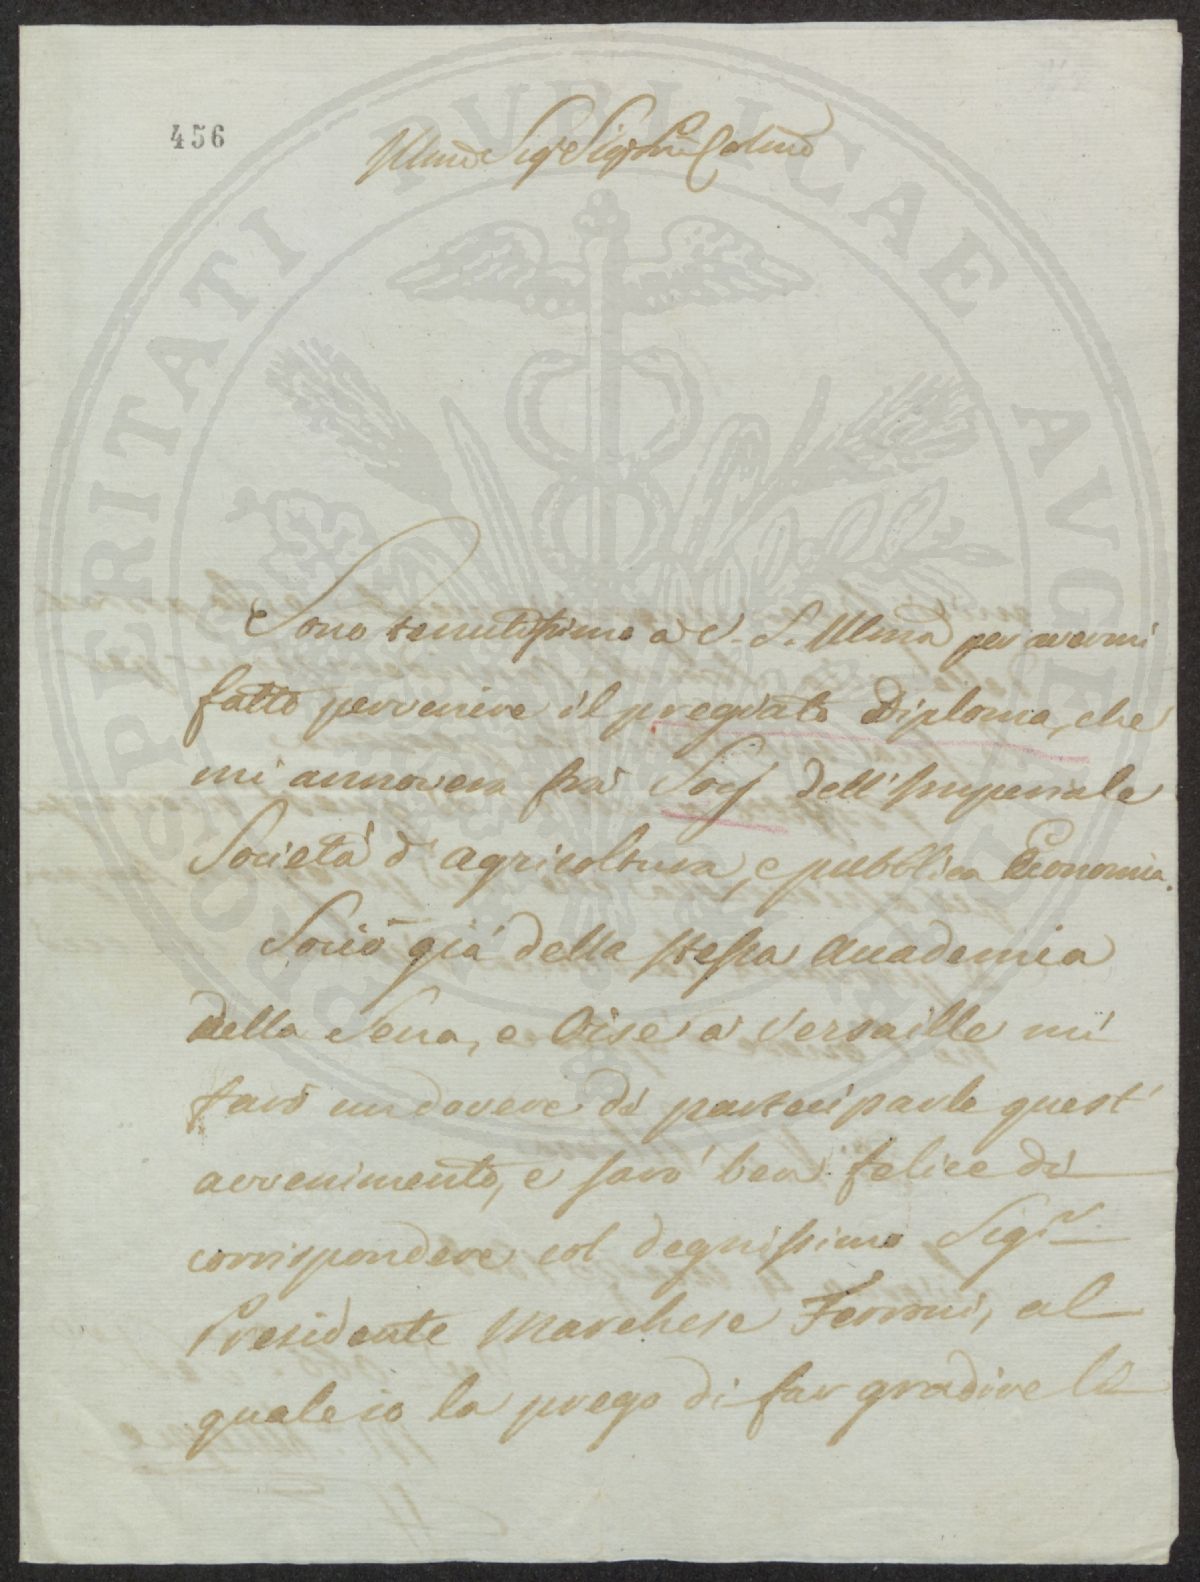 456
Illmo Sigr Sigr Prone Colmo
Sono tenutissimo a V. S. Illma per avermi
fatto pervenire il pregiato Diploma, che
mi annovera fra' Socj dell' Imperiale
Società d' agricoltura, e pubblica Economia.
Socio già della stessa Accademia
della Sena, e Oise a Versaille mi
farò un dovere di parteciparle quest'
avvenimento, e sarò ben felice di
corrispondere col degnissimo Sigr
Presidente Marchese Ferroni, al
quale io la prego di far gradire le
PROSPERITATI PUBLICAE AVGENDAE